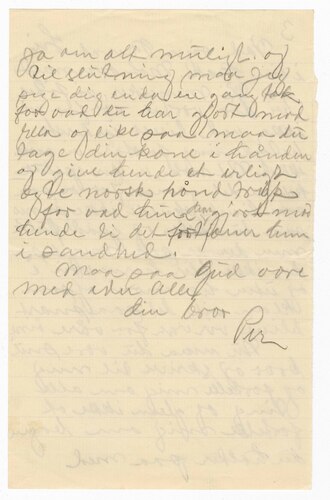 ja om alt muligt. og
til slutning maa jeg
sige dig enda ere gang tak
for vad du har gjort mod
Rea og like saa maa du
tage din kone i hånden
og give hende et erligt
egte norsk hånd tryk
for vad hun har gjort mod
hende ti det fortjener hun
i sandhed.
maa saa Gud vore
med eder alle
din bror
Per